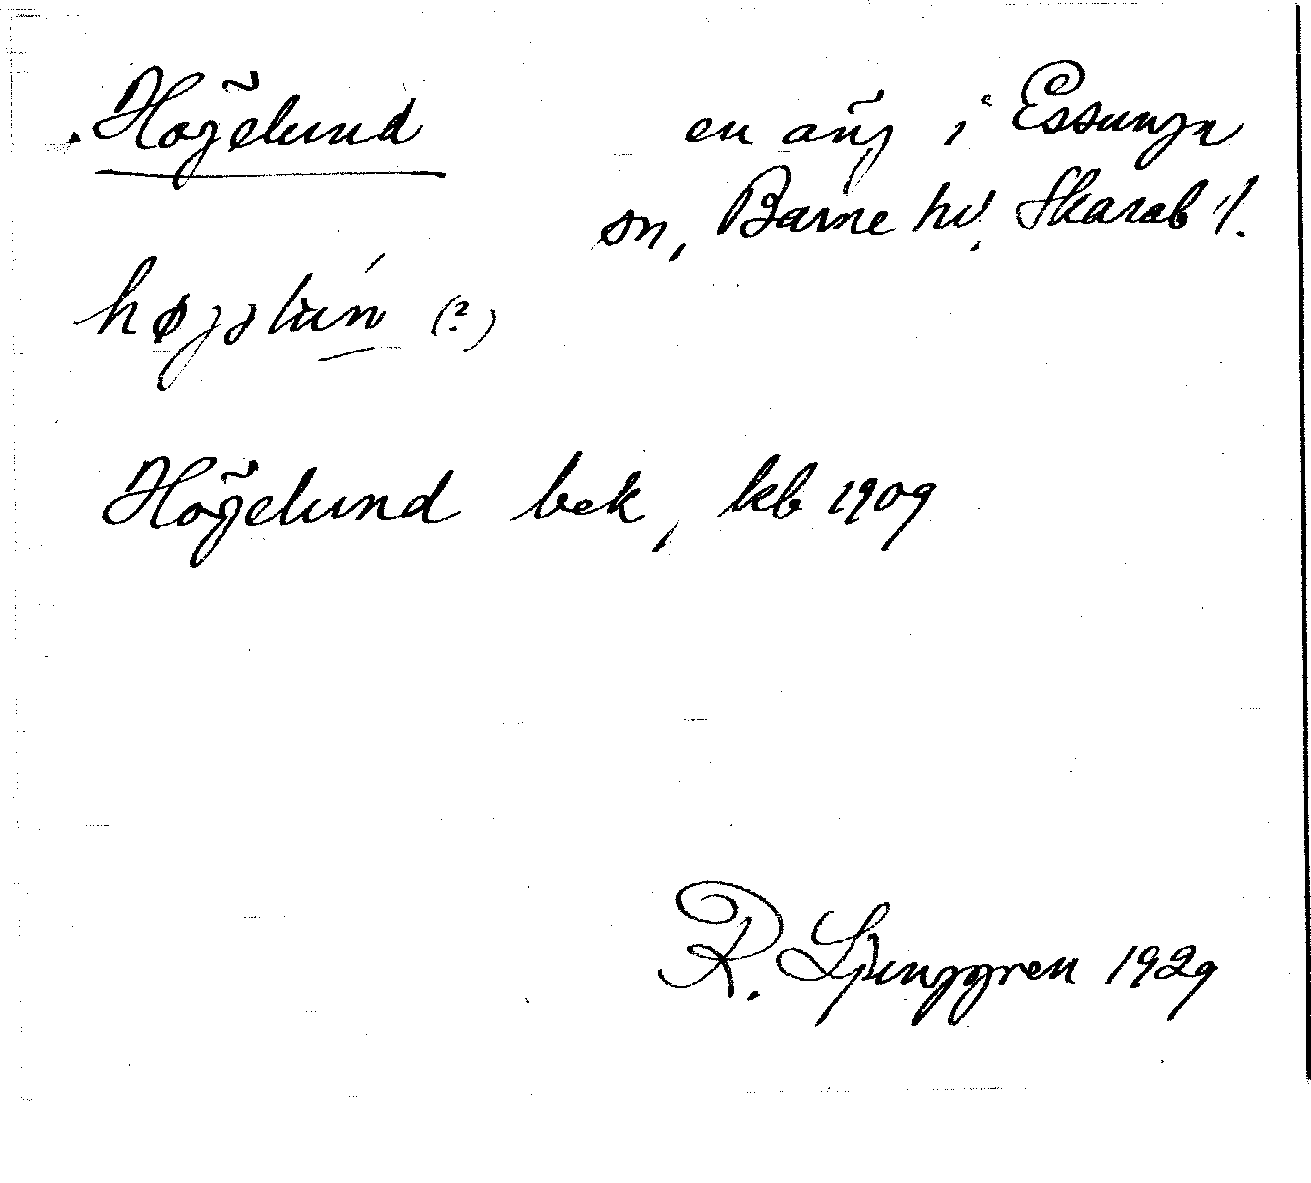 Högelund en äng i Essunga
sn, Barne hd. Skarab. l.
(?)
Högelund bek, kb 1909
R. Ljunggren 1929